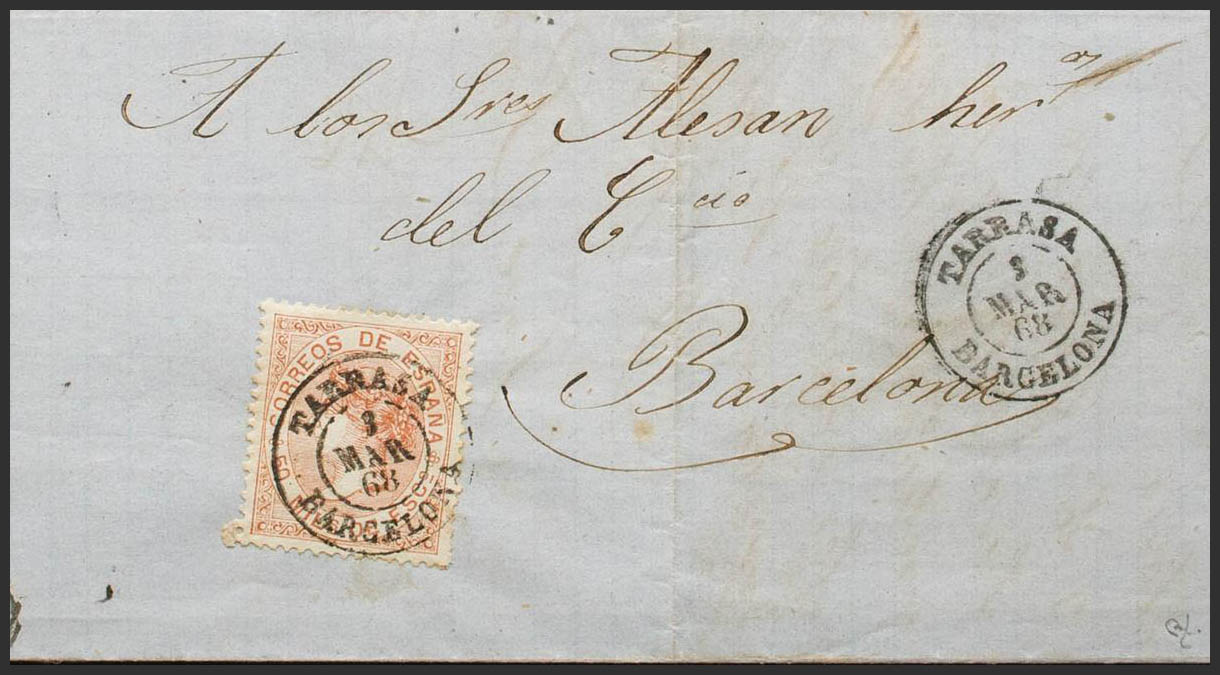 A los Sres Alesan herͫ
del Ccio
Barcelona
TARRASA
3
MAR
68
BARCELONA
CORREOS DE ESPAÑA
50 MIL. DE ESC.
TARRASA
3
MAR
68
BARCELONA